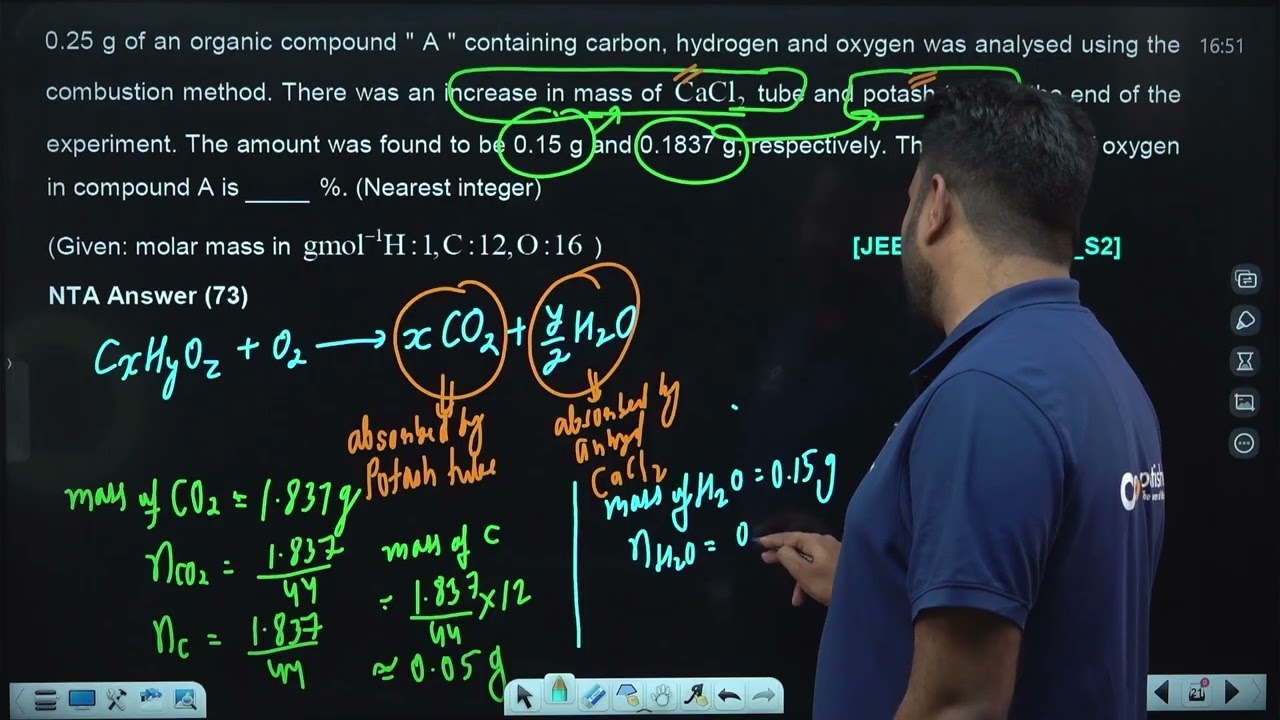 0.25 g of an organic compound " A " containing carbon, hydrogen and oxygen was analysed using the
16:51
combustion method. There was an increase in mass of CaCl₂ tube and potash end of the
experiment. The amount was found to be 0.15 g and 0.1837 g, respectively. oxygen
in compound A is _____ %. (Nearest integer)
(Given: molar mass in gmol⁻¹H:1,C:12,O:16 )
[JEE _S2]
NTA Answer (73)
CxHyOz + O2 → xCO2 + y/2 H2O
absorbed by
Potash tube
absorbed by
anhyd
CaCl2
mass of CO2 = 1.837g
nCO2 = 1.837/44
nC = 1.837/44
mass of C
= 1.837/44 × 12
≈ 0.05 g
mass of H2O = 0.15g
nH2O = 0
21